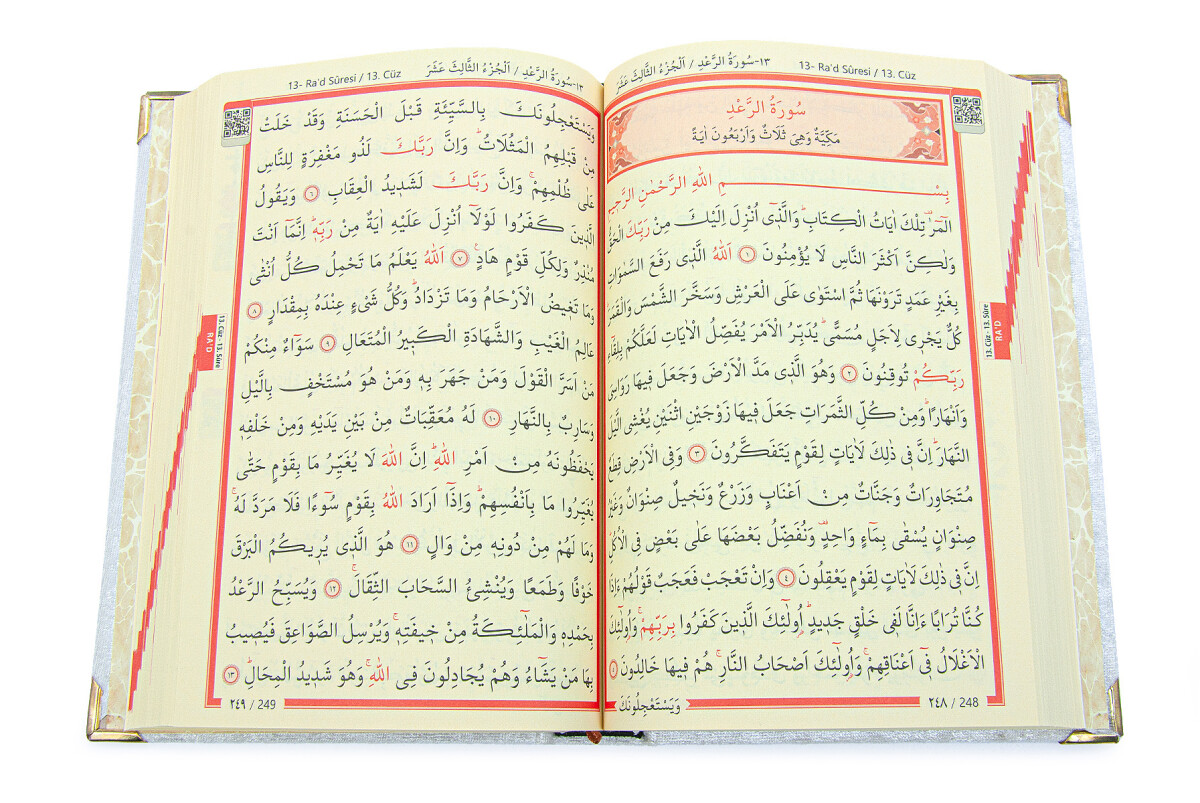 ١٣-سُورَةُ الرَّعْدِ / اَلْجُزْءُ الثَّالِثَ عَشَرَ 13- Ra'd Sûresi / 13. Cüz
سُورَةُ الرَّعْدِ
مَكِّيَّةٌ وَهِىَ ثَلَاثٌ وَاَرْبَعُونَ اٰيَةً
بِسْــــمِ اللّٰهِ الرَّحْمٰنِ الرَّحٖيمِ
الٓمٓرٰ تِلْكَ اٰيَاتُ الْكِتَابِؕ وَالَّذٖٓى اُنْزِلَ اِلَيْكَ مِنْ رَبِّكَ الْحَقُّ
وَلٰكِنَّ اَكْثَرَ النَّاسِ لَا يُؤْمِنُونَ ١ اَللّٰهُ الَّذٖى رَفَعَ السَّمٰوَاتِ
بِغَيْرِ عَمَدٍ تَرَوْنَهَا ثُمَّ اسْتَوٰى عَلَى الْعَرْشِ وَسَخَّرَ الشَّمْسَ وَالْقَمَرَ
كُلٌّ يَجْرٖى لِاَجَلٍ مُسَمًّىؕ يُدَبِّرُ الْاَمْرَ يُفَصِّلُ الْاٰيَاتِ لَعَلَّكُمْ بِلِقَٓاءِ
رَبِّكُمْ تُوقِنُونَ ٢ وَهُوَ الَّذٖى مَدَّ الْاَرْضَ وَجَعَلَ فٖيهَا رَوَاسِىَ
وَاَنْهَارًاؕ وَمِنْ كُلِّ الثَّمَرَاتِ جَعَلَ فٖيهَا زَوْجَيْنِ اثْنَيْنِ يُغْشِى الَّيْلَ
النَّهَارَؕ اِنَّ فٖى ذٰلِكَ لَاٰيَاتٍ لِقَوْمٍ يَتَفَكَّرُونَ ٣ وَفِى الْاَرْضِ قِطَعٌ
مُتَجَاوِرَاتٌ وَجَنَّاتٌ مِنْ اَعْنَابٍ وَزَرْعٌ وَنَخٖيلٌ صِنْوَانٌ وَغَيْرُ
صِنْوَانٍ يُسْقٰى بِمَٓاءٍ وَاحِدٍ وَنُفَضِّلُ بَعْضَهَا عَلٰى بَعْضٍ فِى الْاُكُلِ
اِنَّ فٖى ذٰلِكَ لَاٰيَاتٍ لِقَوْمٍ يَعْقِلُونَ ٤ وَاِنْ تَعْجَبْ فَعَجَبٌ قَوْلُهُمْ ءَاِذَا
كُنَّا تُرَابًا ءَاِنَّا لَفٖى خَلْقٍ جَدٖيدٍؕ اُو۬لٰٓئِكَ الَّذٖينَ كَفَرُوا بِرَبِّهِمْۚ وَاُو۬لٰٓئِكَ
الْاَغْلَالُ فٖٓى اَعْنَاقِهِمْۚ وَاُو۬لٰٓئِكَ اَصْحَابُ النَّارِۚ هُمْ فٖيهَا خَالِدُونَ ٥
وَيَسْتَعْجِلُونَكَ
٢٤٨ / 248
13. Cüz - 13. Sûre
RA'D
13- Ra'd Sûresi / 13. Cüz ١٣-سُورَةُ الرَّعْدِ / اَلْجُزْءُ الثَّالِثَ عَشَرَ
وَيَسْتَعْجِلُونَكَ بِالسَّيِّئَةِ قَبْلَ الْحَسَنَةِ وَقَدْ خَلَتْ
مِنْ قَبْلِهِمُ الْمَثُلَاتُؕ وَاِنَّ رَبَّكَ لَذُو مَغْفِرَةٍ لِلنَّاسِ
عَلٰى ظُلْمِهِمْۚ وَاِنَّ رَبَّكَ لَشَدٖيدُ الْعِقَابِ ٦ وَيَقُولُ
الَّذٖينَ كَفَرُوا لَوْلَٓا اُنْزِلَ عَلَيْهِ اٰيَةٌ مِنْ رَبِّهٖؕ اِنَّمَٓا اَنْتَ
مُنْذِرٌ وَلِكُلِّ قَوْمٍ هَادٍۚ ٧ اَللّٰهُ يَعْلَمُ مَا تَحْمِلُ كُلُّ اُنْثٰى
وَمَا تَغٖيضُ الْاَرْحَامُ وَمَا تَزْدَادُؕ وَكُلُّ شَیْءٍ عِنْدَهُ بِمِقْدَارٍ ٨
عَالِمُ الْغَيْبِ وَالشَّهَادَةِ الْكَبٖيرُ الْمُتَعَالِ ٩ سَوَٓاءٌ مِنْكُمْ
مَنْ اَسَرَّ الْقَوْلَ وَمَنْ جَهَرَ بِهٖ وَمَنْ هُوَ مُسْتَخْفٍ بِالَّيْلِ
وَسَارِبٌ بِالنَّهَارِ ١٠ لَهُ مُعَقِّبَاتٌ مِنْ بَيْنِ يَدَيْهِ وَمِنْ خَلْفِهٖ
يَحْفَظُونَهُ مِنْ اَمْرِ اللّٰهِؕ اِنَّ اللّٰهَ لَا يُغَيِّرُ مَا بِقَوْمٍ حَتّٰى
يُغَيِّرُوا مَا بِاَنْفُسِهِمْؕ وَاِذَٓا اَرَادَ اللّٰهُ بِقَوْمٍ سُٓوءًا فَلَا مَرَدَّ لَهُۚ
وَمَا لَهُمْ مِنْ دُونِهٖ مِنْ وَالٍ ١١ هُوَ الَّذٖى يُرٖيكُمُ الْبَرْقَ
خَوْفًا وَطَمَعًا وَيُنْشِئُ السَّحَابَ الثِّقَالَۚ ١٢ وَيُسَبِّحُ الرَّعْدُ
بِحَمْدِهٖ وَالْمَلٰٓئِكَةُ مِنْ خٖيفَتِهٖۚ وَيُرْسِلُ الصَّوَاعِقَ فَيُصٖيبُ
بِهَا مَنْ يَشَٓاءُ وَهُمْ يُجَادِلُونَ فِى اللّٰهِۚ وَهُوَ شَدٖيدُ الْمِحَالِؕ ١٣
٢٤٩ / 249
13. Cüz - 13. Sûre
RA'D